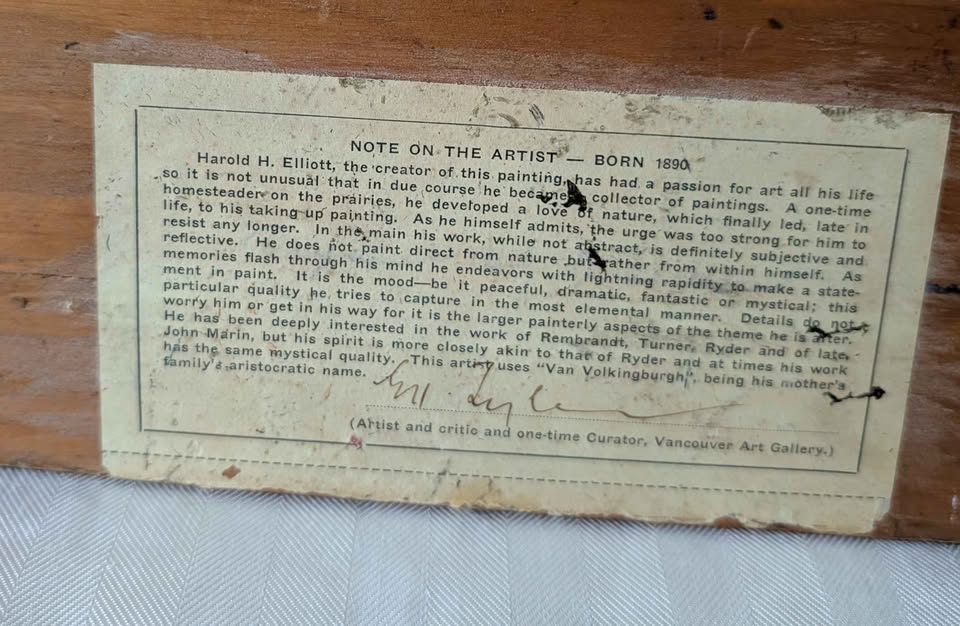 NOTE ON THE ARTIST — BORN 1890
Harold H. Elliott, the creator of this painting, has had a passion for art all his life
so it is not unusual that in due course he became collector of paintings. A one-time
homesteader on the prairies, he developed a love of nature, which finally led, late in
life, to his taking up painting. As he himself admits, the urge was too strong for him to
resist any longer. In the main his work, while not abstract, is definitely subjective and
reflective. He does not paint direct from nature but rather from within himself. As
memories flash through his mind he endeavors with lightning rapidity to make a state-
ment in paint. It is the mood—be it peaceful, dramatic, fantastic or mystical; this
particular quality he tries to capture in the most elemental manner. Details do not
worry him or get in his way for it is the larger painterly aspects of the theme he is after.
He has been deeply interested in the work of Rembrandt, Turner, Ryder and of late,
John Marin, but his spirit is more closely akin to that of Ryder and at times his work
has the same mystical quality. This artist uses "Van Volkingburgh", being his mother's
family's aristocratic name.
(Artist and critic and one-time Curator, Vancouver Art Gallery.)